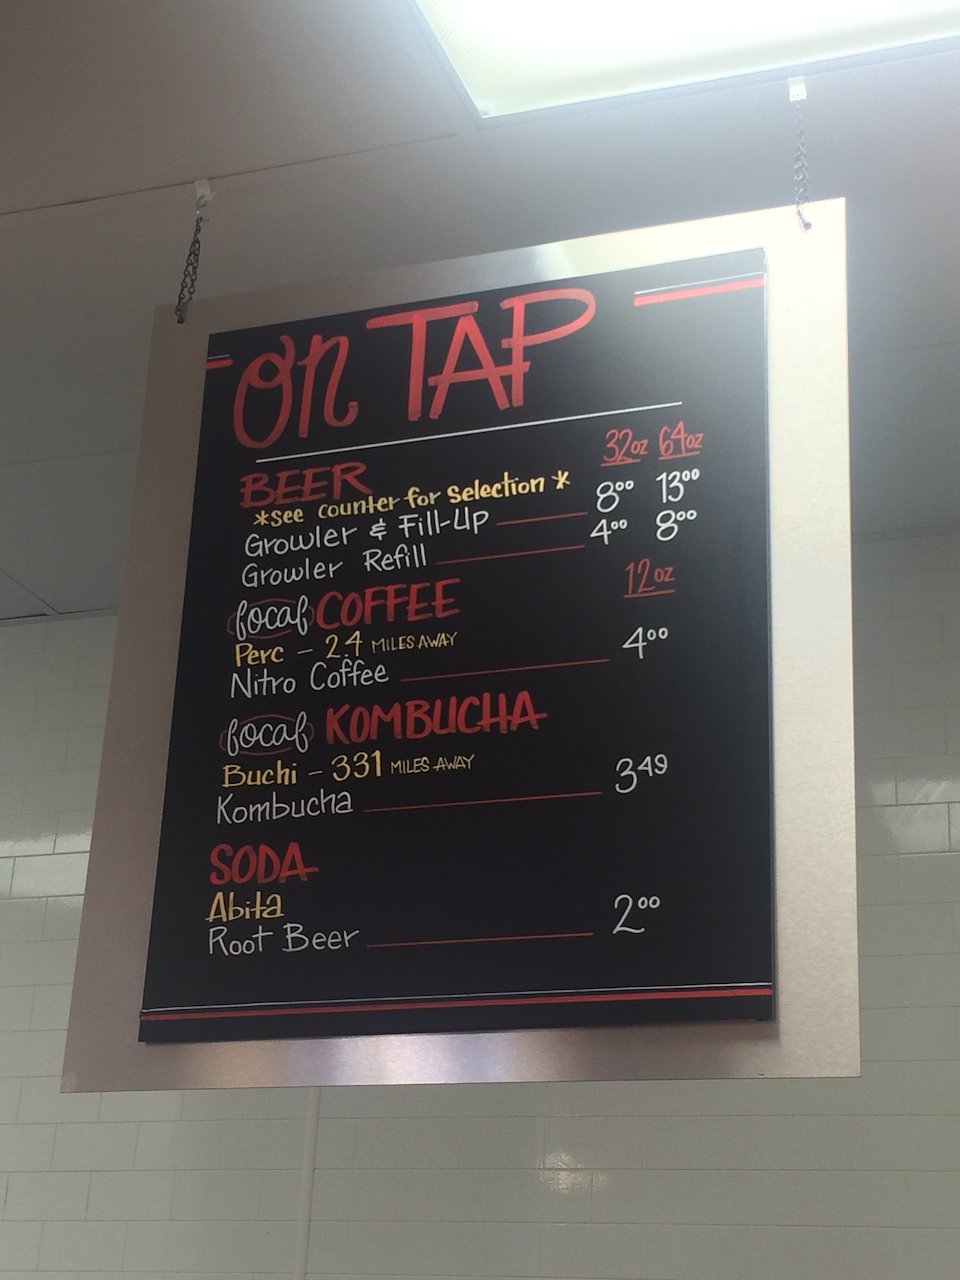 On TAP
BEER 32oz 64oz
*see counter for selection*
Growler & Fill-Up 8⁰⁰ 13⁰⁰
Growler Refill 4⁰⁰ 8⁰⁰
local COFFEE 12oz
Perc - 2.4 MILES AWAY
Nitro Coffee 4⁰⁰
local KOMBUCHA
Buchi - 331 MILES AWAY
Kombucha 3⁴⁹
SODA
Abita
Root Beer 2⁰⁰